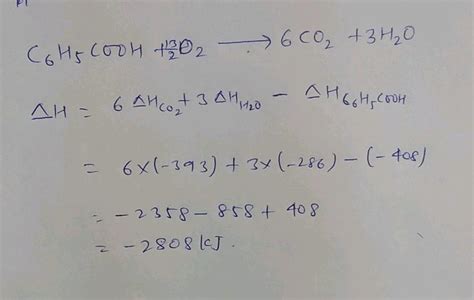 C₆H₅COOH + 13/2 O₂ ⟶ 6CO₂ + 3H₂O
ΔH = 6 ΔH_CO₂ + 3 ΔH_H₂O − ΔH_C₆H₅COOH
= 6×(-393) + 3×(-286) − (-408)
= −2358 − 858 + 408
= −2808 kJ.